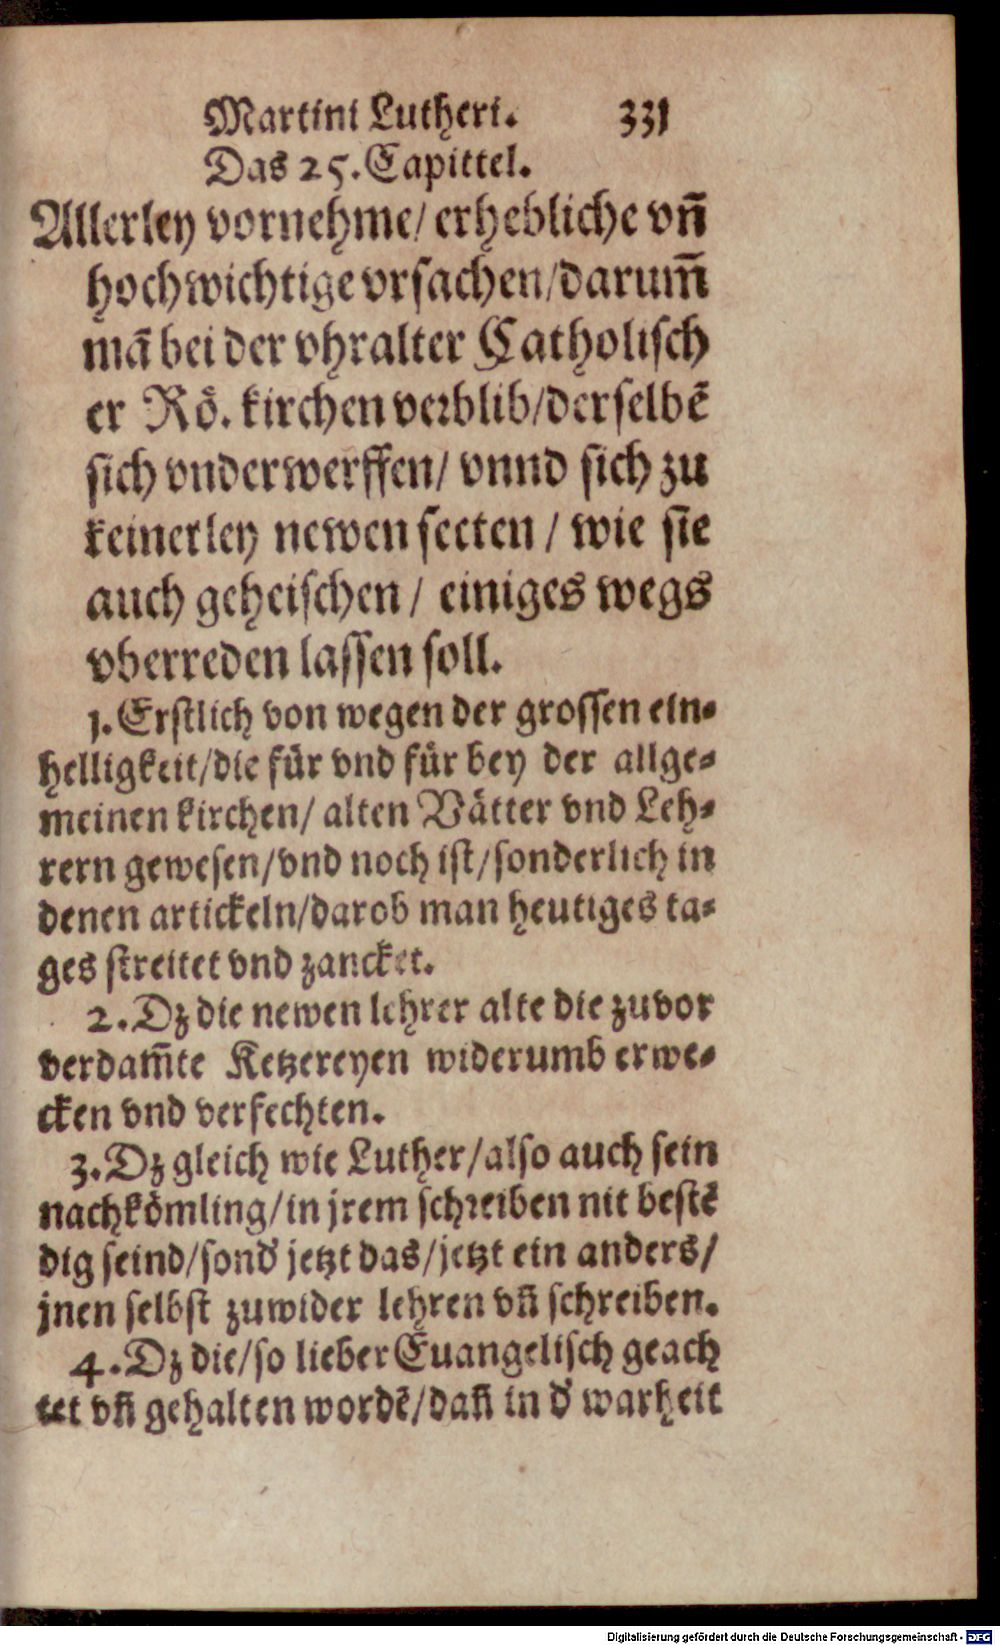 Martini Lutheri. 331
Das 25. Capittel.
Allerley vornehme/ erhebliche vñ
hochwichtige vrsachen/darum̃
mã bei der vhralter Catholisch
er Rö. kirchen verblib/derselbẽ
sich vnderwerffen/ vnnd sich zu
keinerley newen secten / wie sie
auch geheischen / einiges wegs
vberreden lassen soll.
1. Erstlich von wegen der grossen ein-
helligkeit/die für vnd für bey der allge-
meinen kirchen/ alten Vätter vnd Leh-
rern gewesen/vnd noch ist/sonderlich in
denen artickeln/darob man heutiges ta-
ges streitet vnd zancket.
2. Dz die newen lehrer alte die zuvor
verdam̃te Ketzereyen widerumb erwe-
cken vnd verfechten.
3. Dz gleich wie Luther/also auch sein
nachkömling/in jrem schreiben nit bestẽ
dig seind/sond̕ jetzt das/jetzt ein anders/
jnen selbst zuwider lehren vñ schreiben.
4. Dz die/so lieber Euangelisch geach
tet vñ gehalten wordẽ/dañ in d̕ warheit
Digitalisierung gefördert durch die Deutsche Forschungsgemeinschaft - DFG